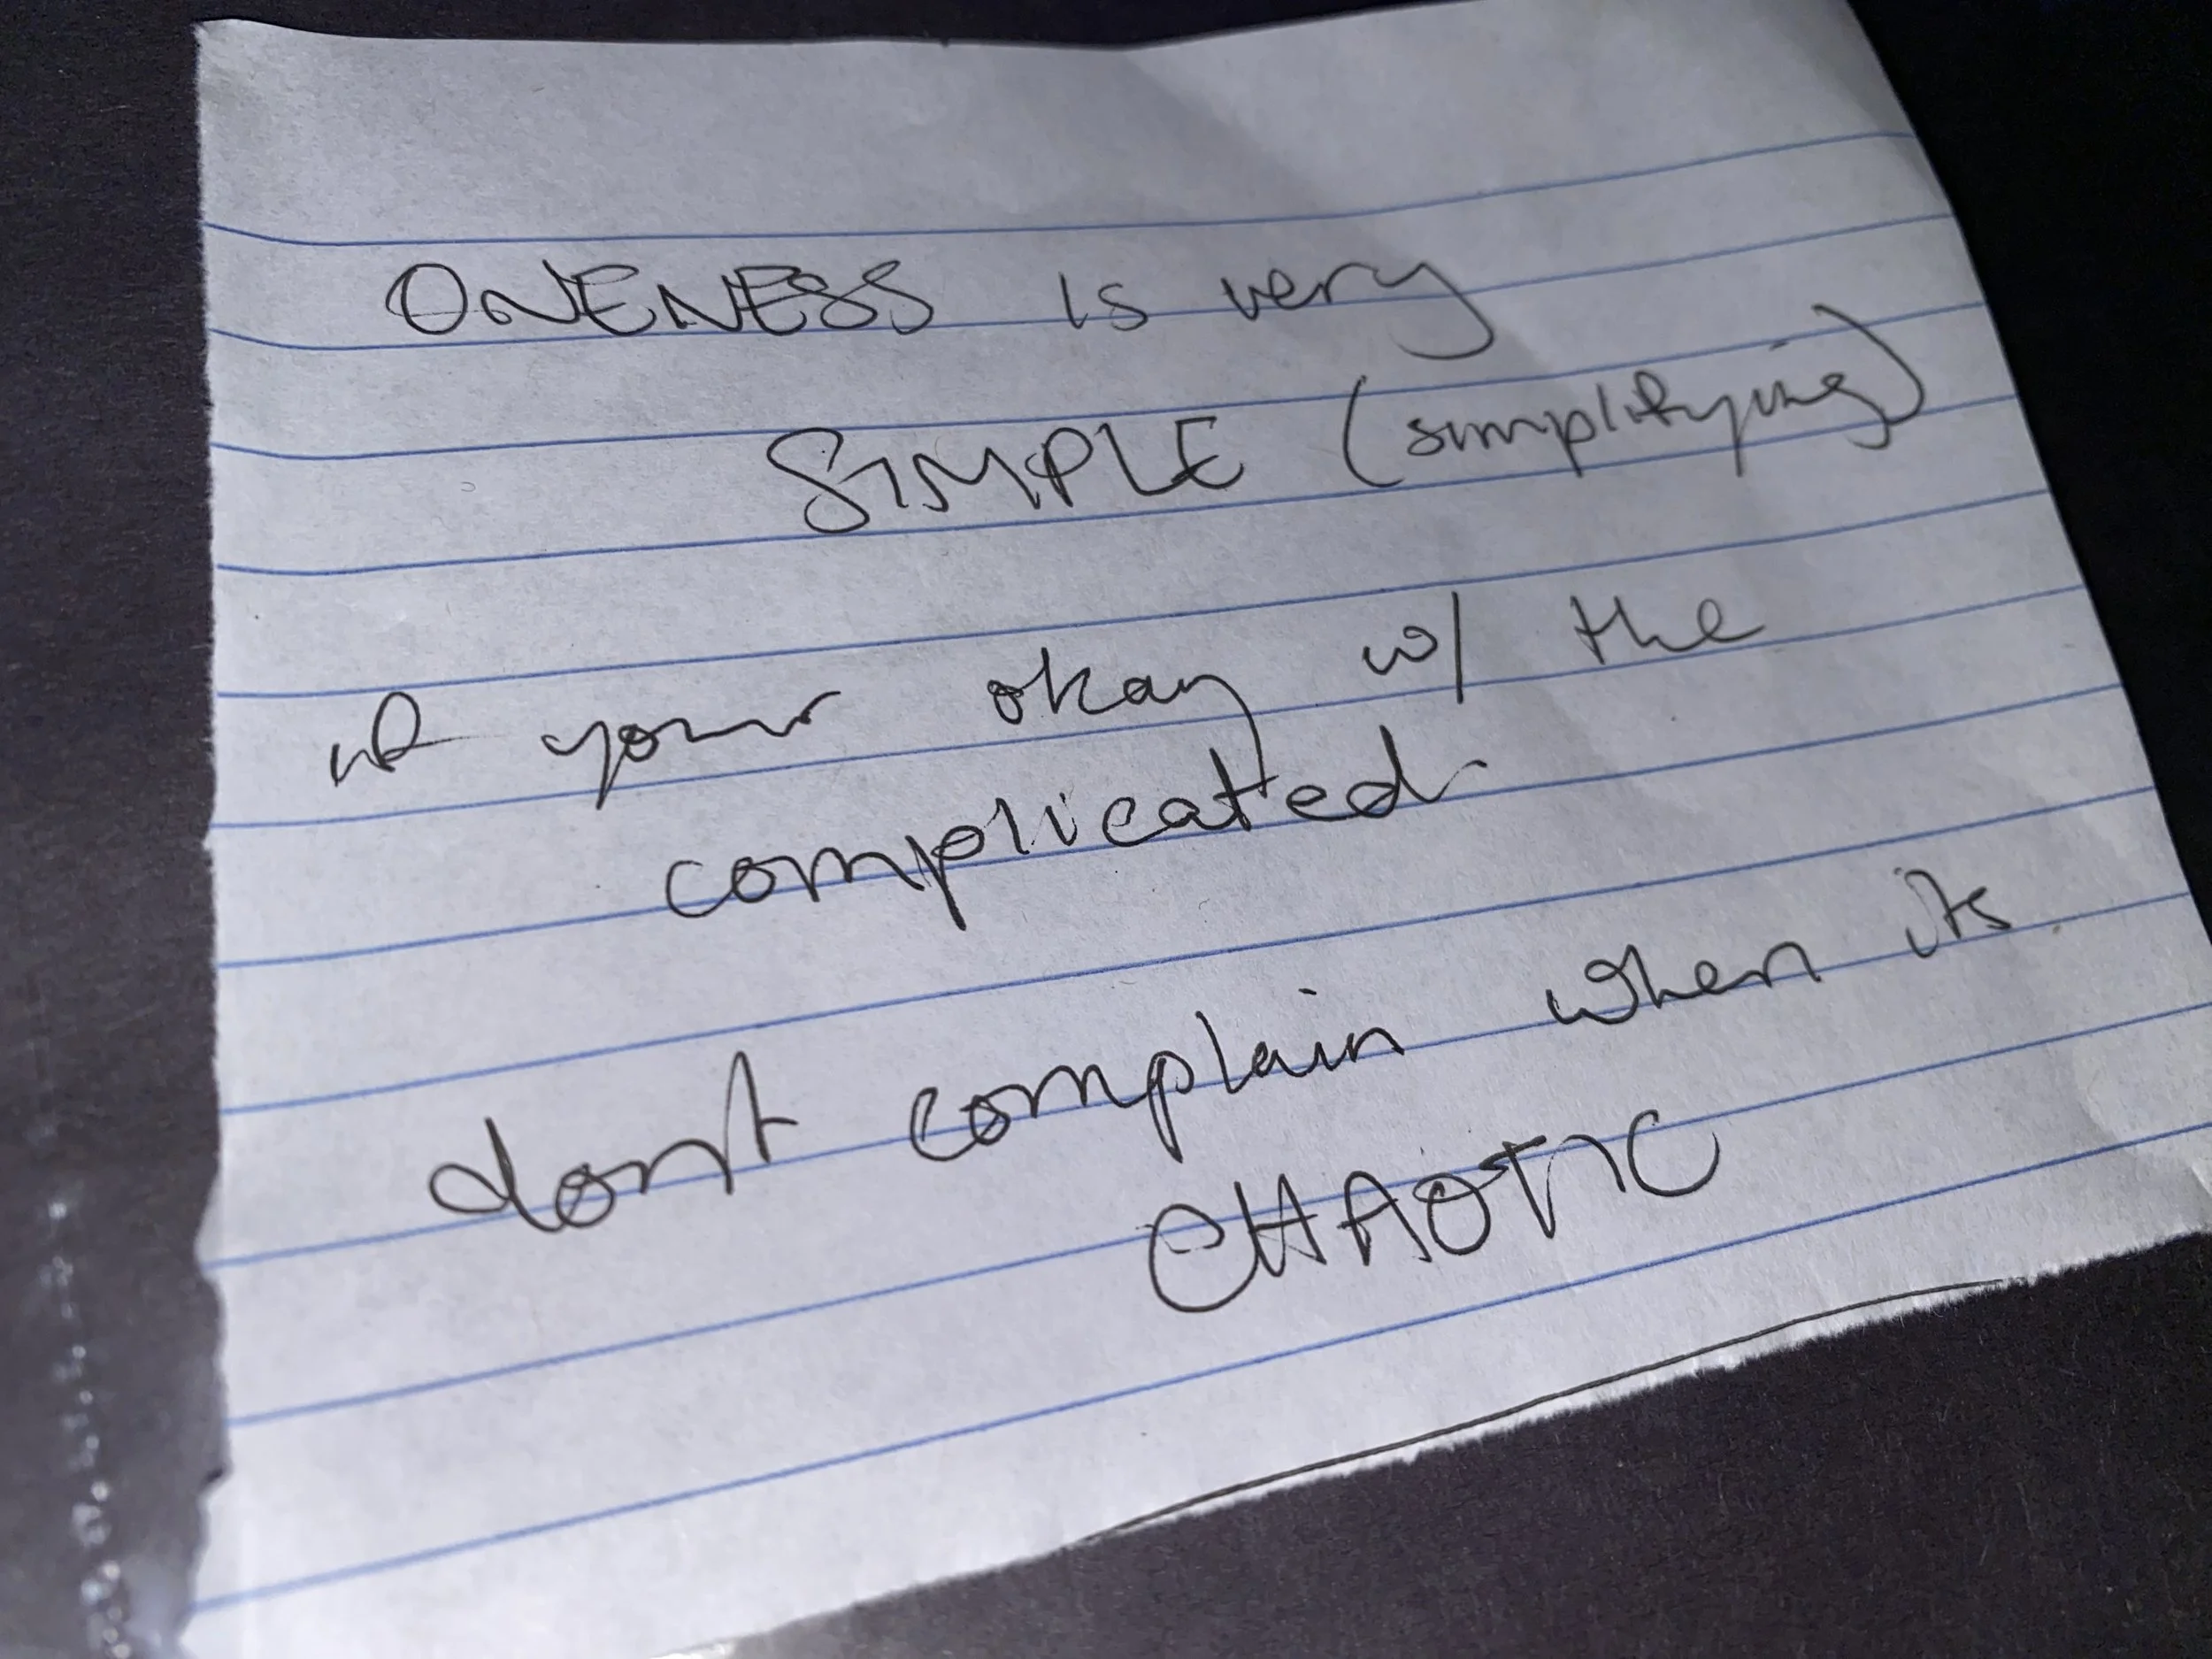 ONENESS is very
SIMPLE (simplifying)
if your okay w/ the
complicated
dont complain when its
CHAOTIC